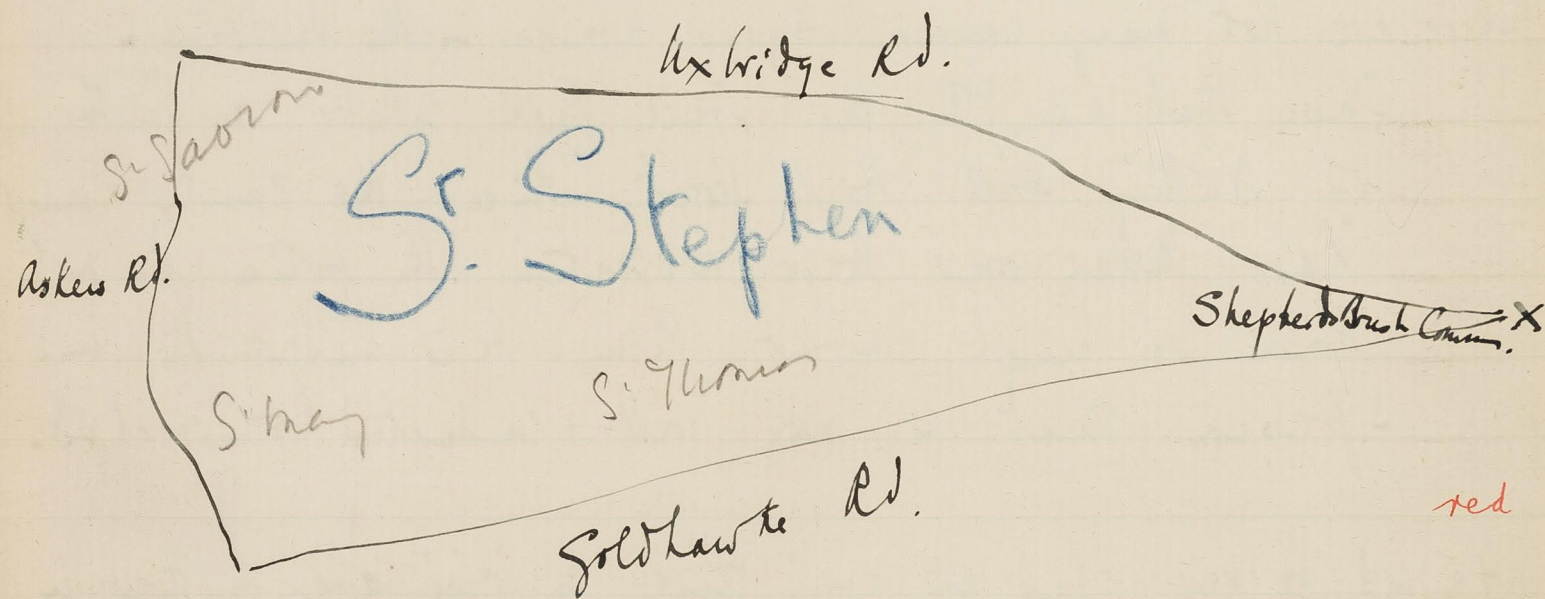 Uxbridge Rd.
St Saviour
St. Stephen
Askew Rd.
Shepherds Bush Comm. X
St Thomas
St Mary
Goldhawke Rd.
red